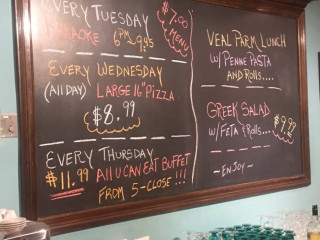 EVERY TUESDAY
KARAOKE 6PM-9:45
$7.00
MENU
EVERY WEDNESDAY
(All DAY) LARGE 16" PIZZA
$8.99
EVERY THURSDAY
$11.99 All U CAN EAT BUFFET
FROM 5-CLOSE !!!
VEAL PARM LUNCH
W/ PENNE PASTA
AND ROLLS....
GREEK SALAD
W/ FETA & ROLLS...
$9.99
~ ENJOY ~